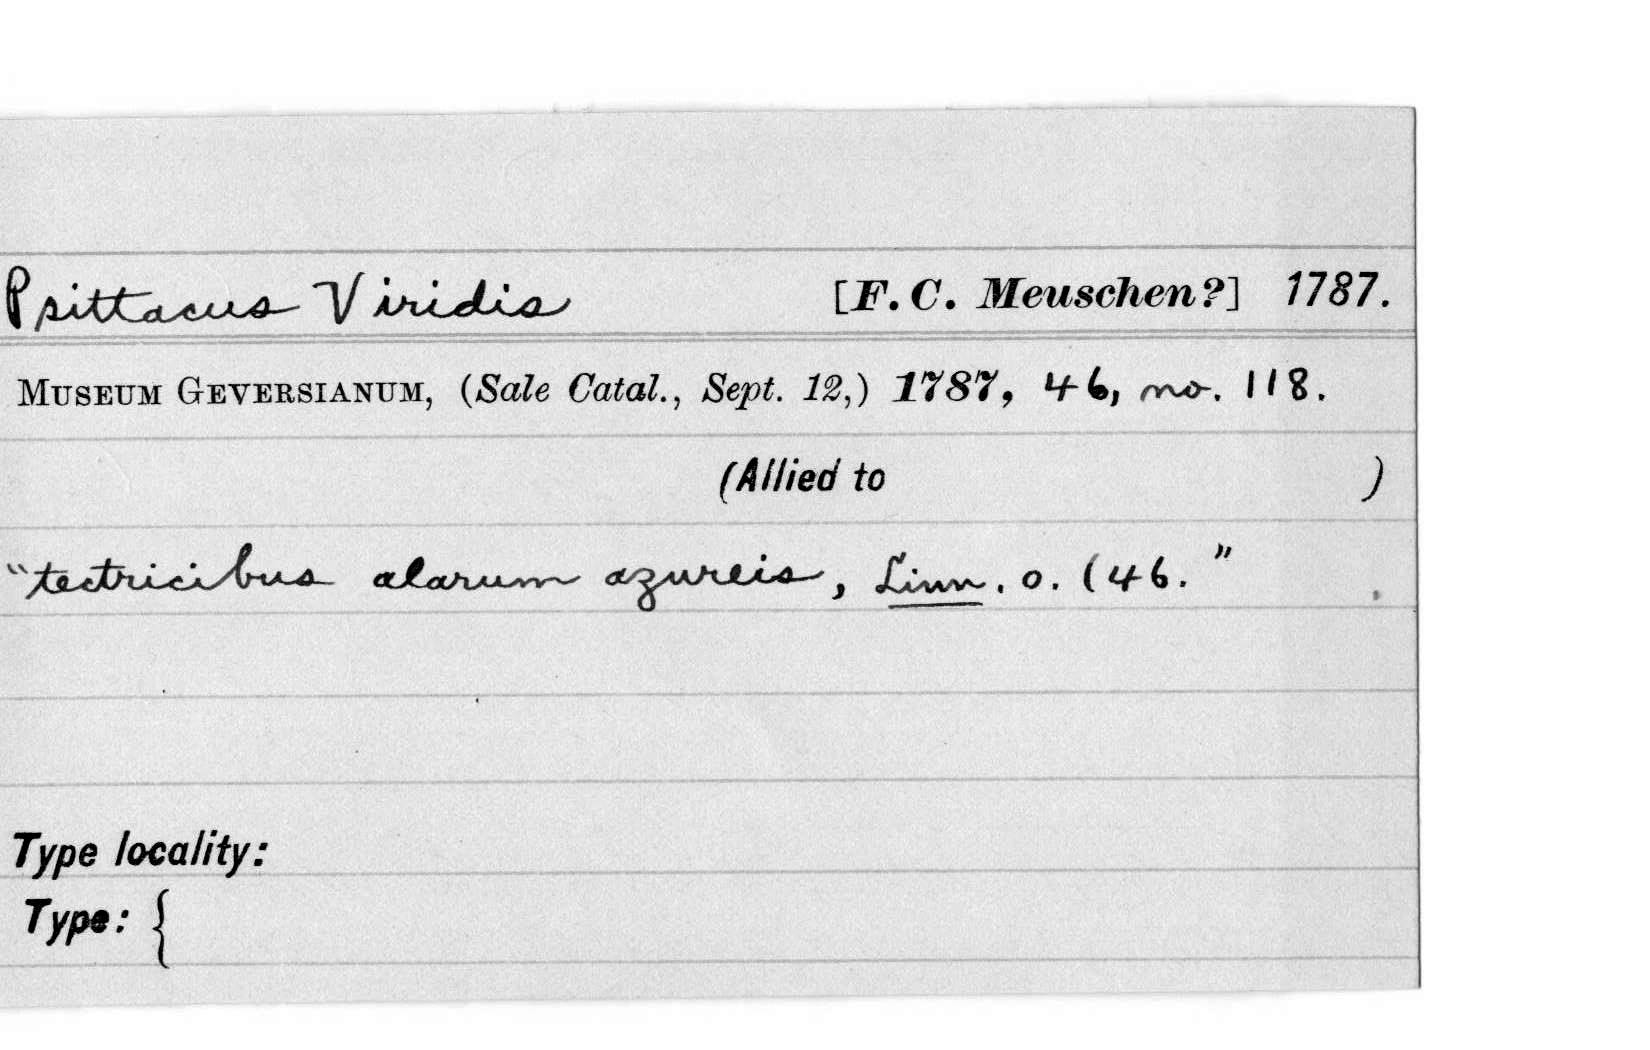 Psittacus Viridis [F. C. Meuschen?] 1787.
Museum Geversianum, (Sale Catal., Sept. 12,) 1787, 46, no. 118.
(Allied to )
"tectricibus alarum azureis, Linn. o. (46."
Type locality:
Type: {